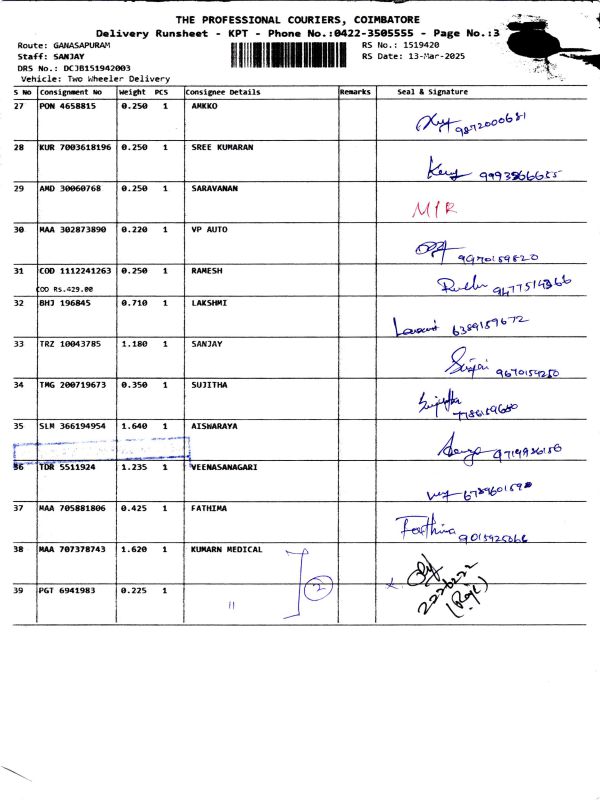 THE PROFESSIONAL COURIERS, COIMBATORE
Delivery Runsheet - KPT - Phone No.:0422-3505555 - Page No.:3
Route: GANASAPURAM RS No.: 1519420
Staff: SANJAY RS Date: 13-Mar-2025
DRS No.: DCJB151942003
Vehicle: Two Wheeler Delivery
S No Consignment No Weight PCS Consignee Details Remarks Seal & Signature
27 PON 4658815 0.250 1 AMKKO
9872000681
28 KUR 7003618196 0.250 1 SREE KUMARAN
29 AMD 30060768 0.250 1 SARAVANAN
M/R
30 MAA 302873890 0.220 1 VP AUTO
9970159820
31 COD 1112241263 0.250 1 RAMESH
COD Rs.429.00
32 BHJ 196845 0.710 1 LAKSHMI
6389159672
33 TRZ 10043785 1.180 1 SANJAY
9670154250
34 TMG 200719673 0.350 1 SUJITHA
Sujitha
35 SLM 366194954 1.640 1 AISWARAYA
36 TDR 5511924 1.235 1 VEENASANAGARI
37 MAA 705881806 0.425 1 FATHIMA
Fathima
38 MAA 707378743 1.620 1 KUMARN MEDICAL
2
39 PGT 6941983 0.225 1 "
2226222
(Raje)